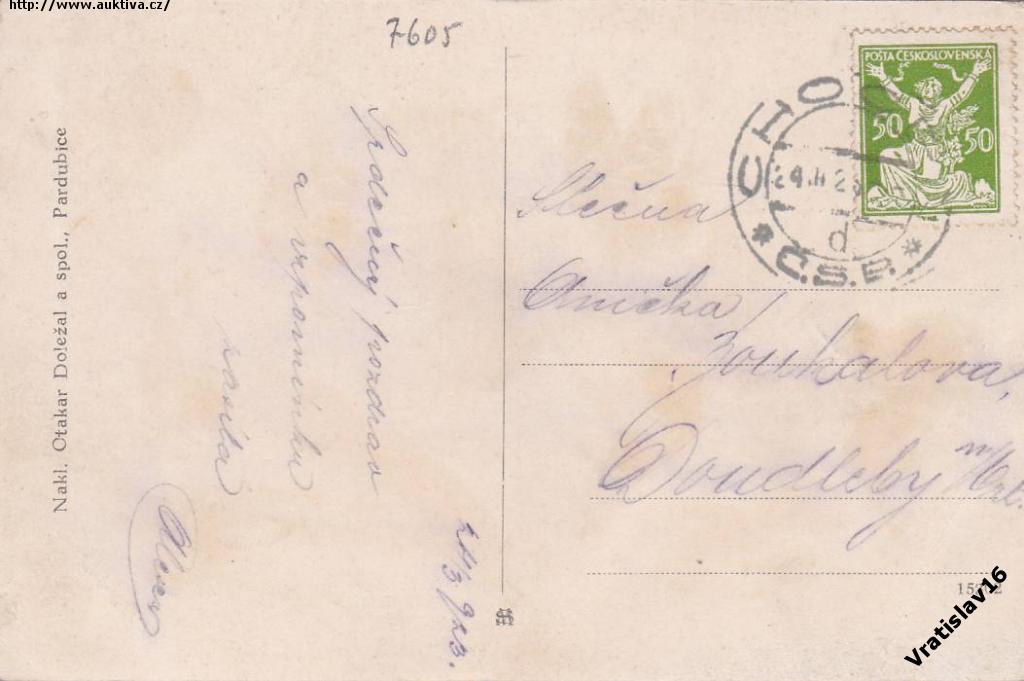 http://www.auktiva.cz/
7605
Nakl. Otakar Doležal a spol., Pardubice
Srdečný pozdrav
a vzpomínku
zasílá
24/3 923.
POŠTA ČESKOSLOVENSKÁ
50 50
CHO
24
d
* Č.S.P. *
Slečna
Anička
Doudleby
Vratislav16